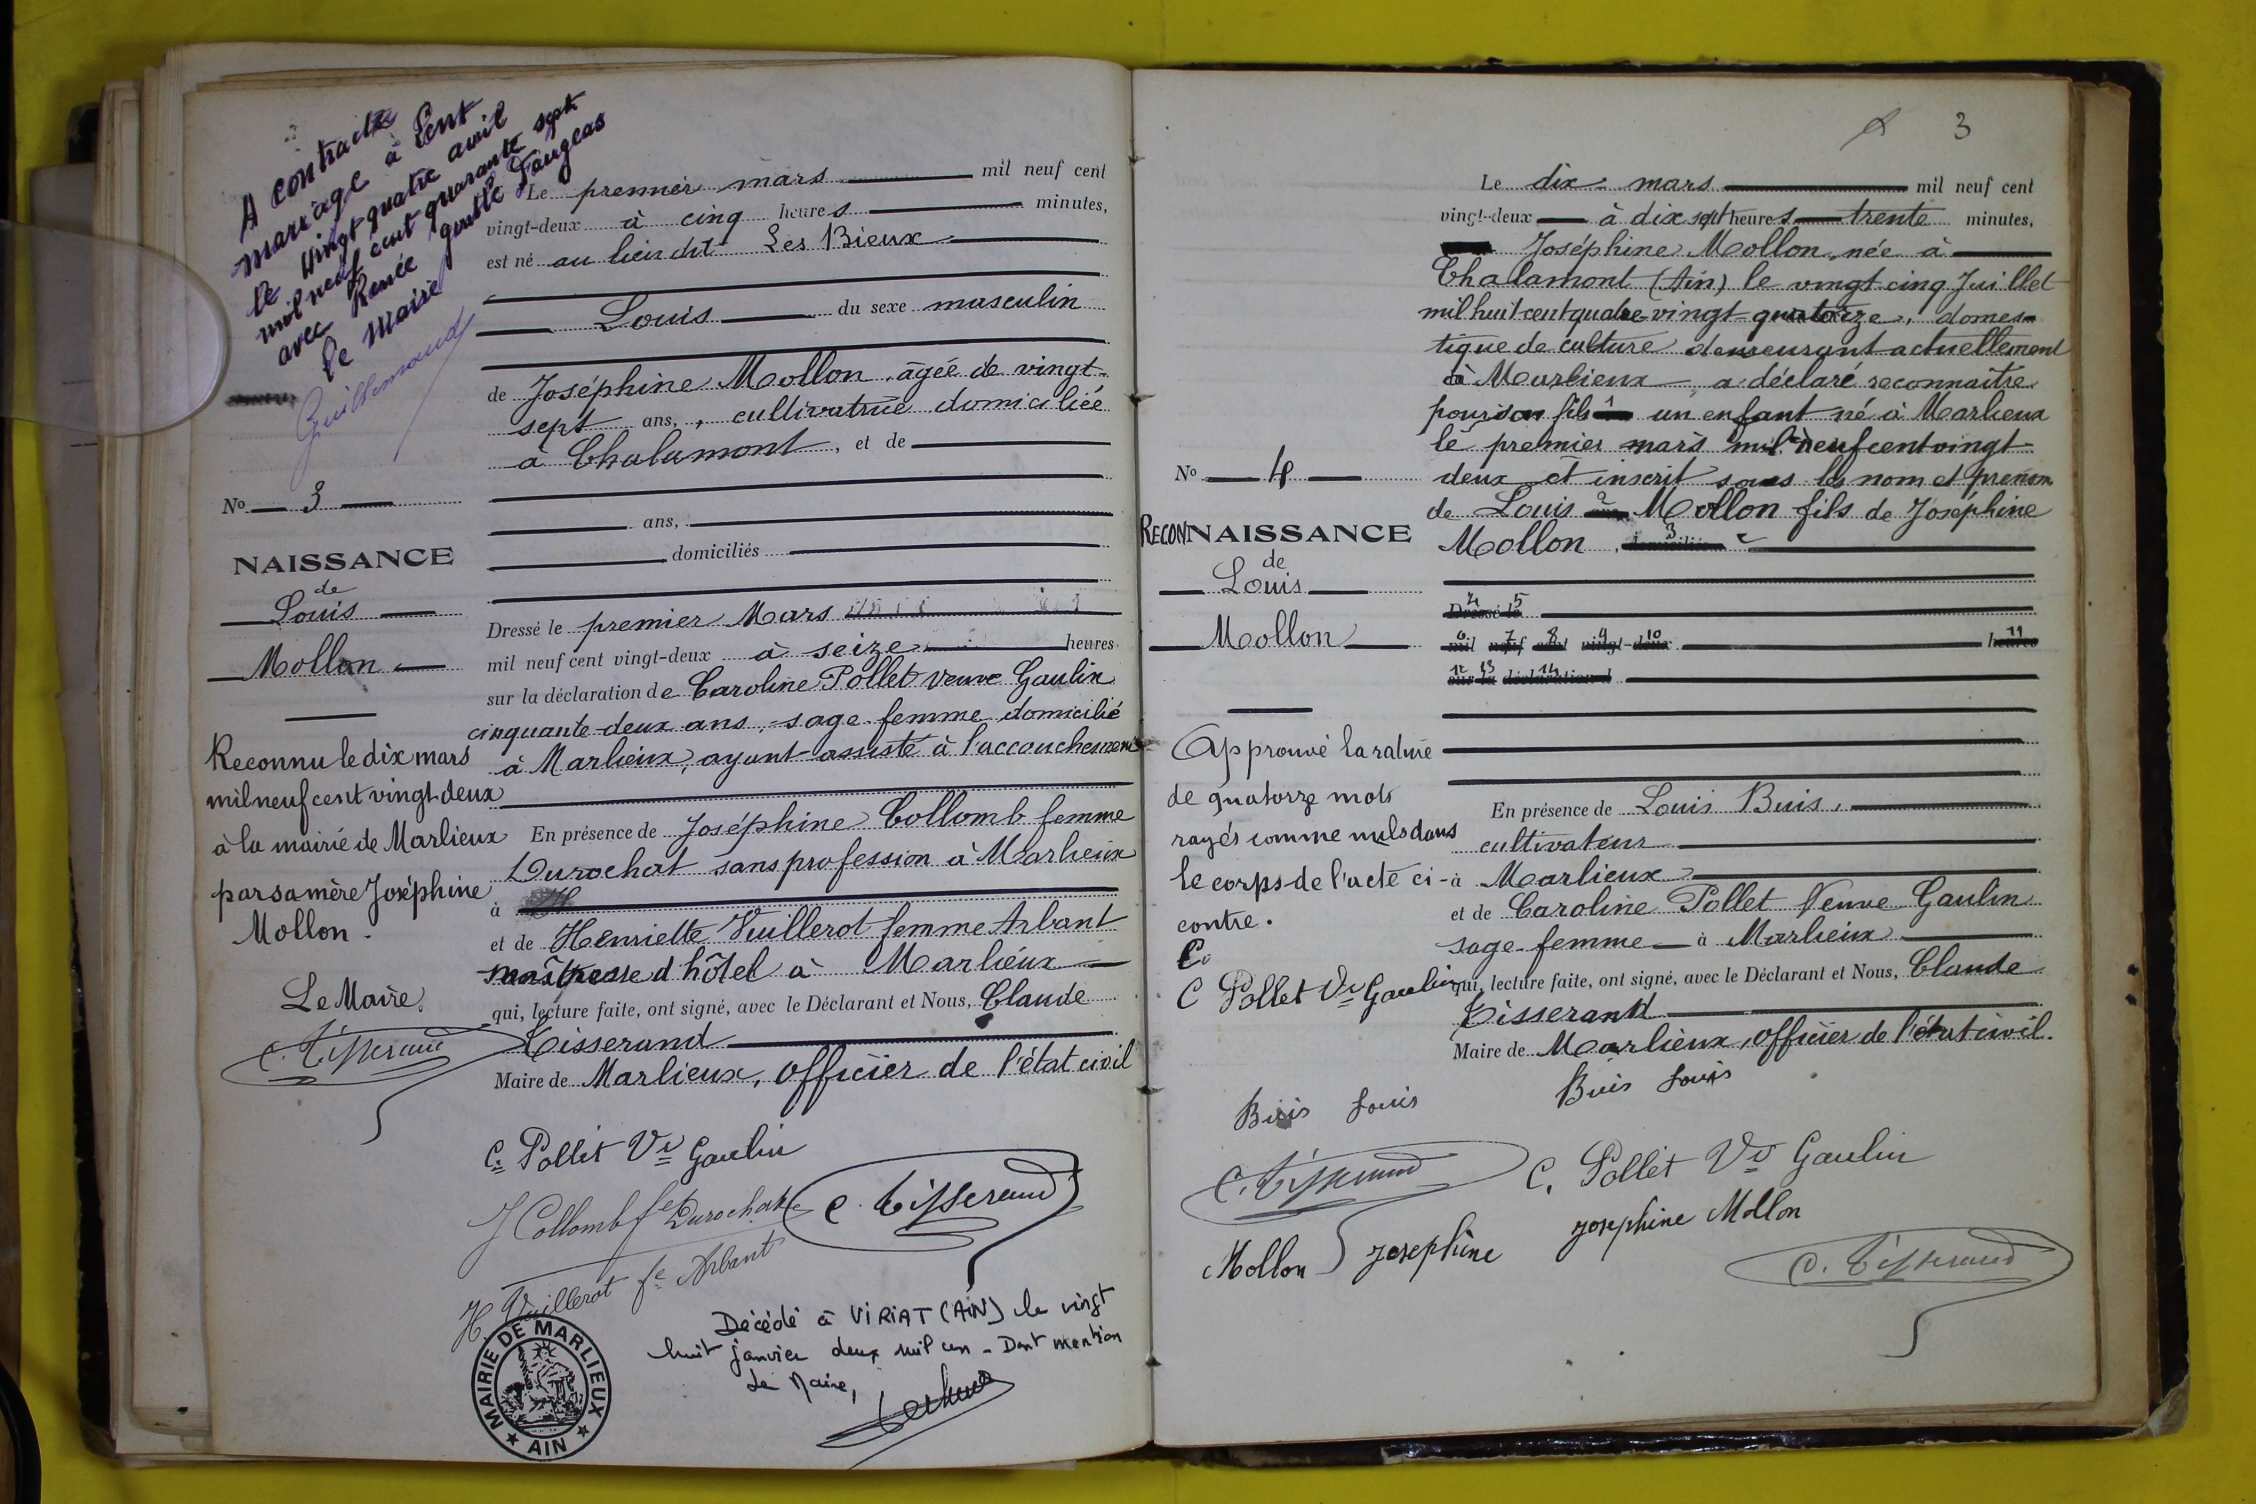 A contracté
mariage à Lent
le vingt quatre avril
mil neuf cent quarante sept
avec Renée Faugeas
le Maire
Guillemaud
Le premier mars mil neuf cent
vingt-deux à cinq heures minutes,
est né au lieu dit Les Bieux
Louis du sexe masculin
de Joséphine Mollon, âgée de vingt-
sept ans, cultivatrice domiciliée
à Chalamont, et de
ans,
domiciliés
No 3
NAISSANCE
de
Louis
Mollon
Dressé le premier Mars
mil neuf cent vingt-deux à seize heures
sur la déclaration de Caroline Pollet veuve Gaulin
cinquante-deux ans, sage-femme domicilié
à Marlieux, ayant assisté à l'accouchement
En présence de Joséphine Collomb femme
Durochat sans profession à Marlieux
à
et de Henriette Vuillerot femme Arbant
maîtresse d'hôtel à Marlieux
qui, lecture faite, ont signé, avec le Déclarant et Nous, Claude
Tisserand
Maire de Marlieux, officier de l'état civil
Reconnu le dix mars
mil neuf cent vingt deux
à la mairie de Marlieux
par sa mère Joséphine
Mollon.
Le Maire,
C. Tisserand
C. Pollet Ve Gaulin
J Collomb fe Durochat
C. Tisserand
H. Vuillerot fe Arbant
Décédé à VIRIAT (AIN) le vingt
huit janvier deux mil un - Dont mention
Le Maire,
MAIRIE DE MARLIEUX
AIN
3
Le dix mars mil neuf cent
vingt-deux à dix sept heures trente minutes,
Joséphine Mollon, née à
Chalamont (Ain) le vingt cinq Juillet
mil huit cent quatre-vingt-quatorze, domes-
tique de culture demeurant actuellement
à Marlieux a déclaré reconnaître
pour son fils 1 un enfant né à Marlieux
le premier mars mil neuf cent vingt-
deux et inscrit sous les nom et prénom
de Louis 2 Mollon fils de Joséphine
Mollon 3
No 4
RECONNAISSANCE
de
Louis
Mollon
4 5
Dressé le
6 7 8 9 10 11
mil neuf cent vingt-deux heures
12 13 14
sur la déclaration d
Approuvé la rature
de quatorze mots
rayés comme nuls dans
le corps de l'acte ci-
contre.
C. Pollet Ve Gaulin
En présence de Louis Buis,
cultivateur
à Marlieux
et de Caroline Pollet Veuve Gaulin
sage-femme à Marlieux
qui, lecture faite, ont signé, avec le Déclarant et Nous, Claude
Tisserand
Maire de Marlieux, officier de l'état civil.
Buis Louis
Buis Louis
C. Tisserand
C. Pollet Ve Gaulin
Mollon Josephine
Josephine Mollon
C. Tisserand